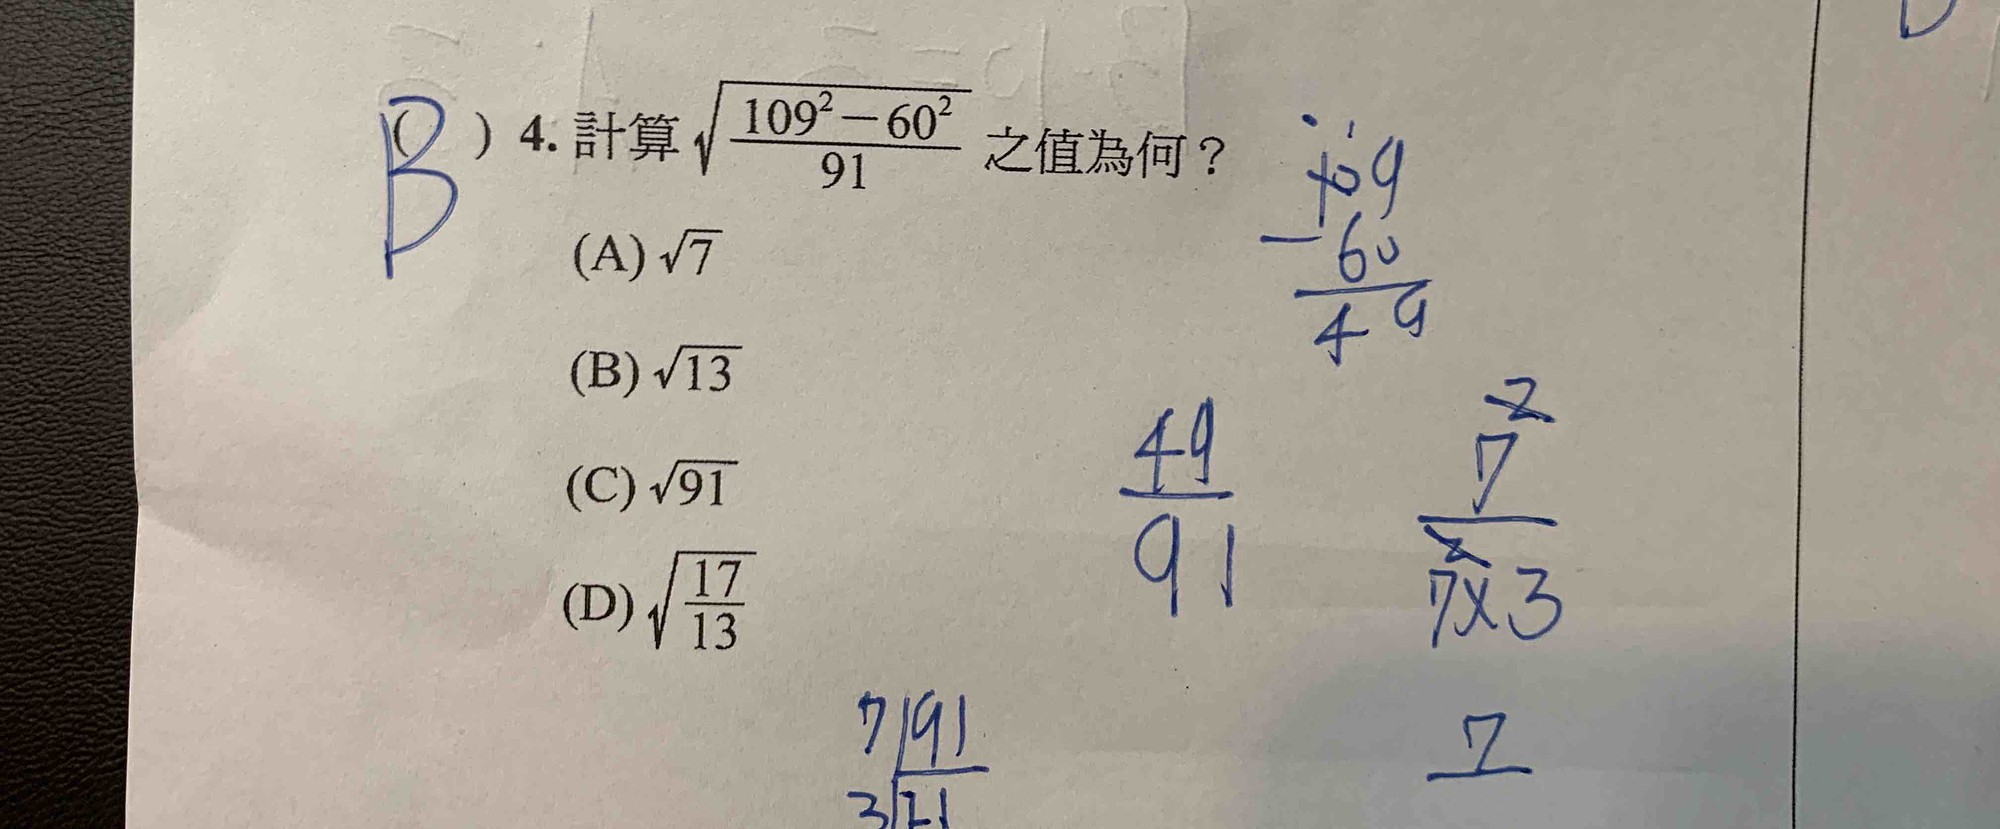 B ( ) 4. 計算 √((109²－60²)/91) 之值為何？
(A) √7
(B) √13
(C) √91
(D) √(17/13)
109
－60
49
49/91
7²/(7²×3)
7|91
3|21
7